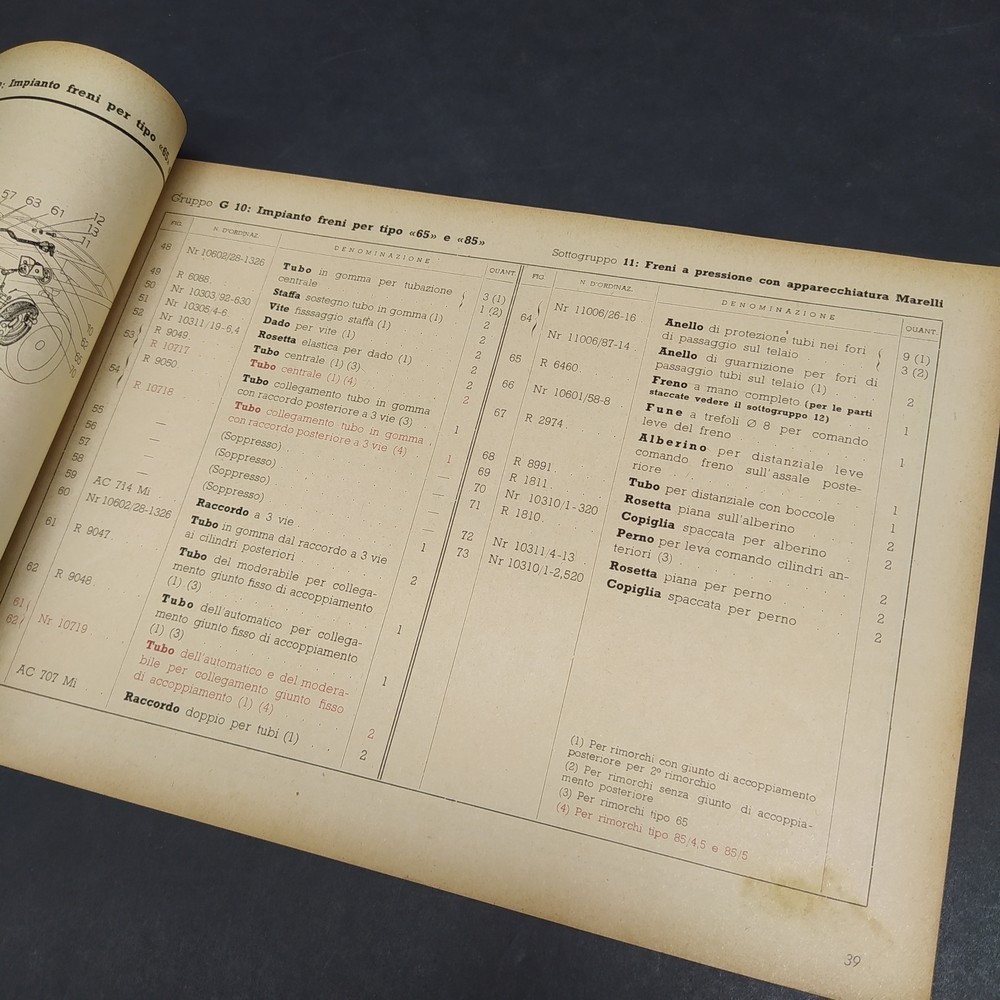 Impianto freni per tipo «65»
57 63 61 12
13
11
Gruppo G 10: Impianto freni per tipo «65» e «85»
Sottogruppo 11: Freni a pressione con apparecchiatura Marelli
FIG. N. D'ORDINAZ. DENOMINAZIONE QUANT.
48 Nr 10602/28-1326 Tubo in gomma per tubazione 3 (1)
centrale 1 (2)
49 R 6088 Staffa sostegno tubo in gomma (1) 2
50 Nr 10303/92-630 Vite fisssaggio staffa (1) 2
51 Nr 10305/4-6 Dado per vite (1) 2
52 Nr 10311/19-6,4 Rosetta elastica per dado (1) 2
53 R 9049 Tubo centrale (1) (3) 2
R 10717 Tubo centrale (1) (4) 2
54 R 9050 Tubo collegamento tubo in gomma
con raccordo posteriore a 3 vie (3) 1
R 10718 Tubo collegamento tubo in gomma
con raccordo posteriore a 3 vie (4) 1
55 — (Soppresso) —
56 — (Soppresso) —
57 — (Soppresso) —
58 — (Soppresso) —
59 AC 714 Mi Raccordo a 3 vie 1
60 Nr 10602/28-1326 Tubo in gomma dal raccordo a 3 vie
ai cilindri posteriori 2
61 R 9047 Tubo del moderabile per collega-
mento giunto fisso di accoppiamento
(1) (3) 1
62 R 9048 Tubo dell'automatico per collega-
mento giunto fisso di accoppiamento
(1) (3) 1
61
62 Nr 10719 Tubo dell'automatico e del modera-
bile per collegamento giunto fisso
di accoppiamento (1) (4) 2
AC 707 Mi Raccordo doppio per tubi (1) 2
FIG. N. D'ORDINAZ. DENOMINAZIONE QUANT.
64 Nr 11006/26-16 Anello di protezione tubi nei fori 9 (1)
di passaggio sul telaio 3 (2)
Nr 11006/87-14 Anello di guarnizione per fori di
passaggio tubi sul telaio (1) 2
65 R 6460 Freno a mano completo (per le parti
staccate vedere il sottogruppo 12) 1
66 Nr 10601/58-8 Fune a trefoli Ø 8 per comando
leve del freno 1
67 R 2974 Alberino per distanziale leve
comando freno sull'assale poste-
riore 1
68 R 8991 Tubo per distanziale con boccole 1
69 R 1811 Rosetta piana sull'alberino 2
70 Nr 10310/1-320 Copiglia spaccata per alberino 2
71 R 1810 Perno per leva comando cilindri an-
teriori (3) 2
72 Nr 10311/4-13 Rosetta piana per perno 2
73 Nr 10310/1-2,520 Copiglia spaccata per perno 2
(1) Per rimorchi con giunto di accoppiamento
posteriore per 2º rimorchio
(2) Per rimorchi senza giunto di accoppia-
mento posteriore
(3) Per rimorchi tipo 65
(4) Per rimorchi tipo 85/4,5 e 85/5
39